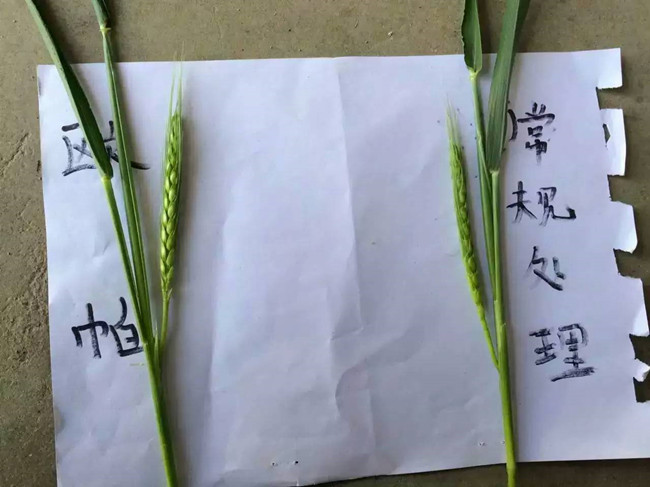 欧
帕
常
规
处
理